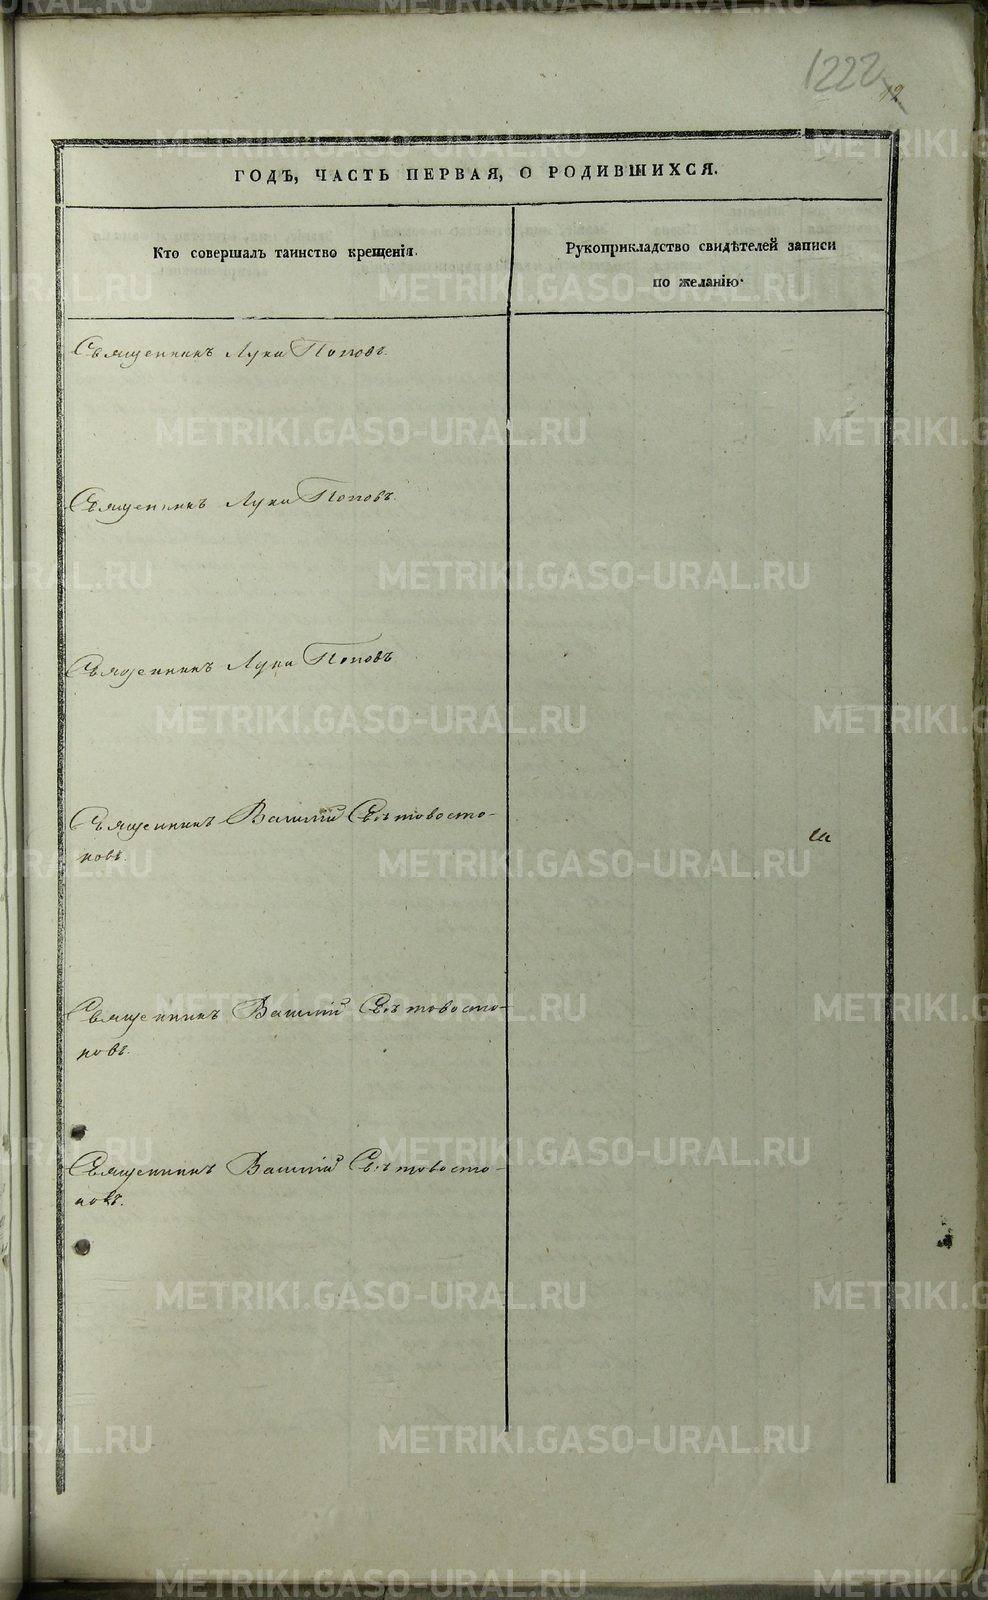 1222
19
ГОДЪ, ЧАСТЬ ПЕРВАЯ, О РОДИВШИХСЯ.
Кто совершалъ таинство крещенія.
Рукоприкладство свидѣтелей записи
по желанію.
Священникъ Лука Поповъ.
Священникъ Лука Поповъ.
Священникъ Лука Поповъ
Священникъ Василій Свѣтовосто-
ковъ.
Священникъ Василій Свѣтовосто-
ковъ.
Священникъ Василій Свѣтовосто-
ковъ.
METRIKI.GASO-URAL.RU